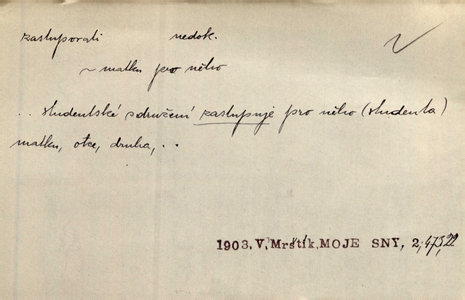 zastupovati nedok.
~ matku pro něho
.. studentské sdružení zastupuje pro něho (studenta)
matku, otce, druha, ..
1903, V, Mrštík, MOJE SNY, 2, 473, 22